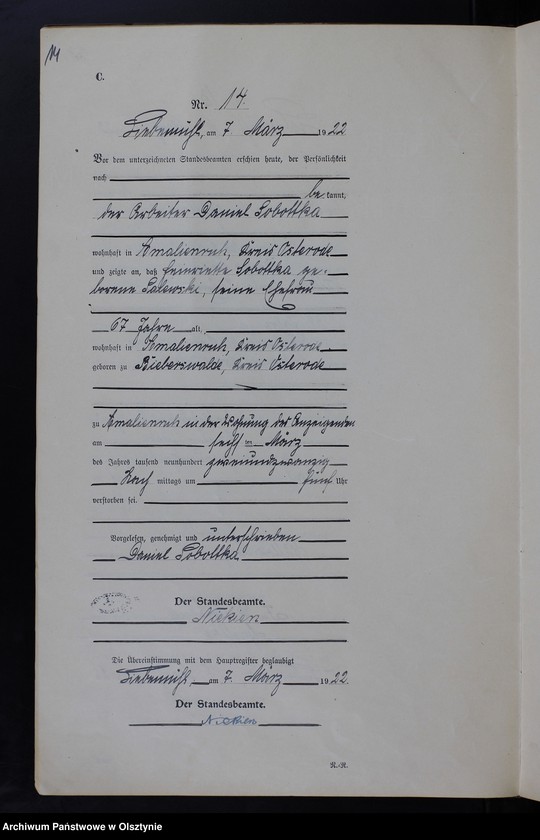 14
C.
Nr. 14.
Liebemühl, am 7. März 1922
Vor dem unterzeichneten Standesbeamten erschien heute, der Persönlichkeit
nach
be kannt,
der Arbeiter Daniel Sobottka
wohnhaft in Amalienruh, Kreis Osterode
und zeigte an, daß Henriette Sobottka ge-
borene Salewski, seine Ehefrau
67 Jahre alt,
wohnhaft in Amalienruh, Kreis Osterode
geboren zu Bieberswalde, Kreis Osterode
zu Amalienruh in der Wohnung des Anzeigenden
am sechsten März
des Jahres tausend neunhundert zweiundzwanzig
Nach mittags um fünf Uhr
verstorben sei.
Vorgelesen, genehmigt und unterschrieben
Daniel Sobottka
Der Standesbeamte.
Die Übereinstimmung mit dem Hauptregister beglaubigt
Liebemühl, am 7. März 1922.
Der Standesbeamte.
R.-R.
Archiwum Państwowe w Olsztynie